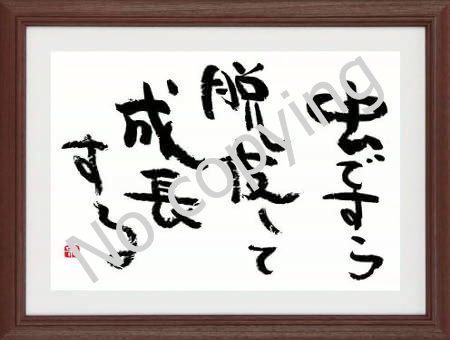 虫ですら
脱皮して
成長
する
No copying